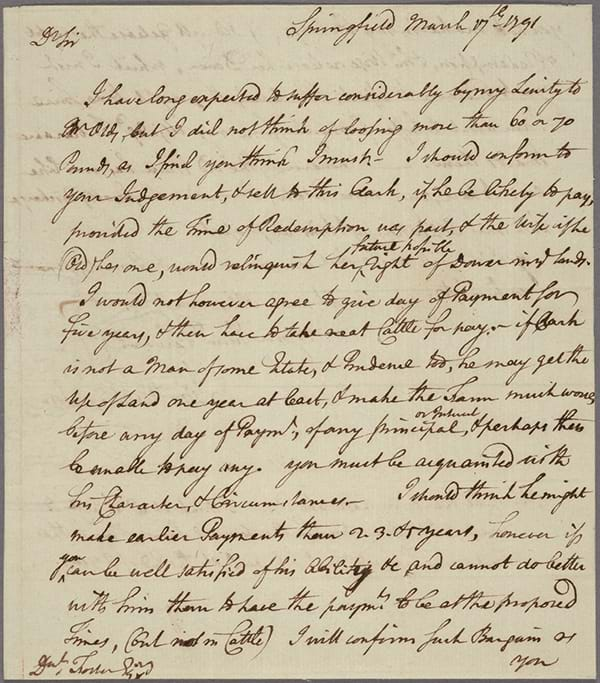 Springfield March 17th 1791
Dr Sir
I have long expected to suffer considerably by my Lenity to
Mr Olds, but I did not think of loosing more than 60 or 70
Pounds, as I find you think I must - I should conform to
your Judgement, & sell to this Clark, if he be likely to pay,
provided the Time of Redemption was past, & the Wife if he
(Old) has one, would relinquish her right of Dower in sd lands -
future possible
I would not however agree to give day of Payment for
five years, & then have to take neat Cattle for pay - if Clark
is not a Man of some Estate, & Prudence too, he may get the
use of Land one year at least, & make the Farm much worse
before any day of Paymt, of any principal, & perhaps then
or Interest
be unable to pay any. you must be acquainted with
his Character, & Circumstances - I should think he might
make earlier Payments than 2. 3. & 5 years, however if
you can be well satisfied of his Ability &c and cannot do better
with him than to have the paymts to be at the proposed
Times, (but not in Cattle) I will confirm such Bargain as
you
Dwt Foster Esqr